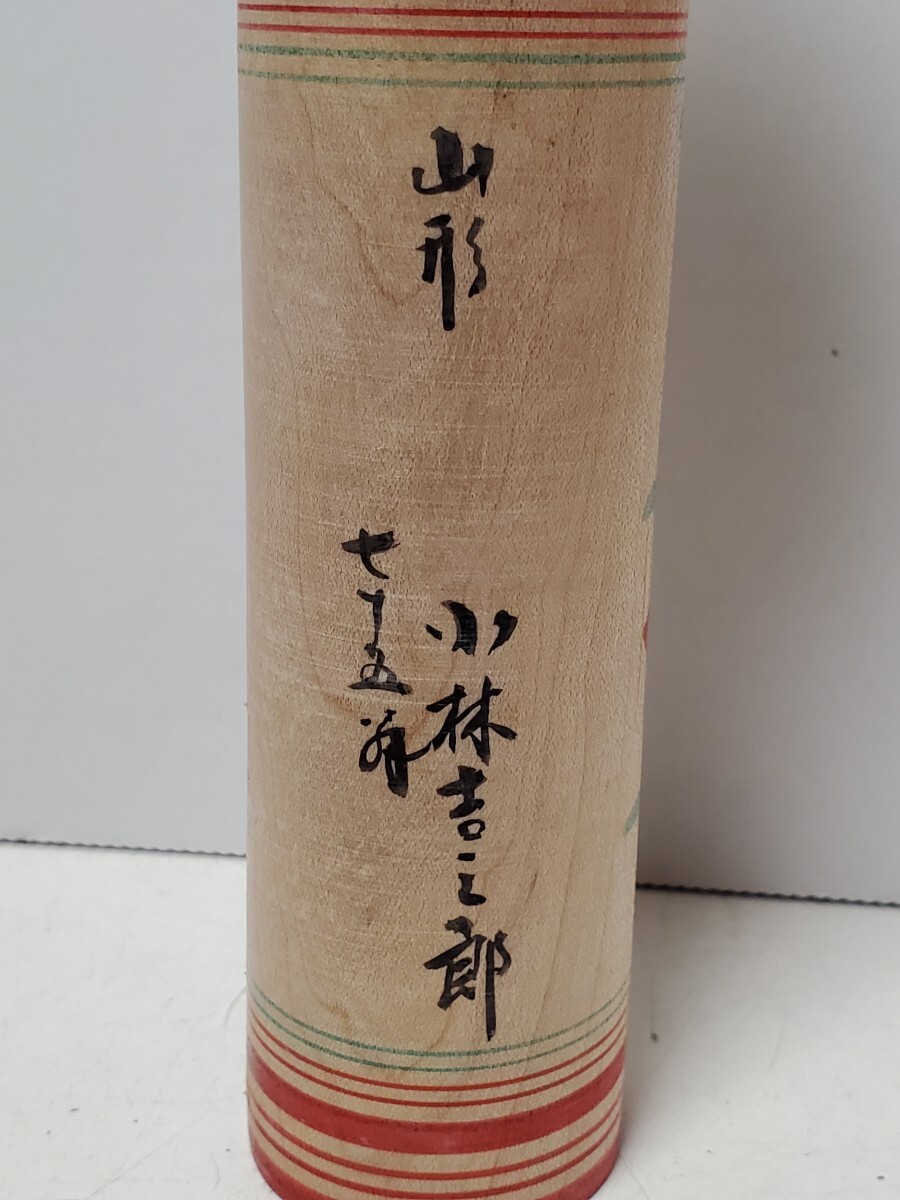 山形
小林吉三郎
七十五才